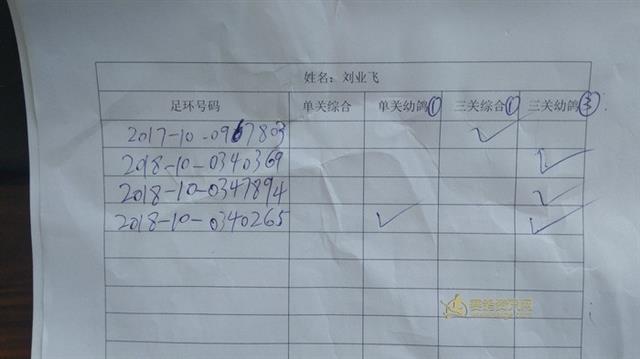 姓名：刘业飞
足环号码 单关综合 单关幼鸽① 三关综合① 三关幼鸽③
2017-10-0967803 ✓
2018-10-0340369 ✓
2018-10-0347894 ✓
2018-10-0340265 ✓ ✓